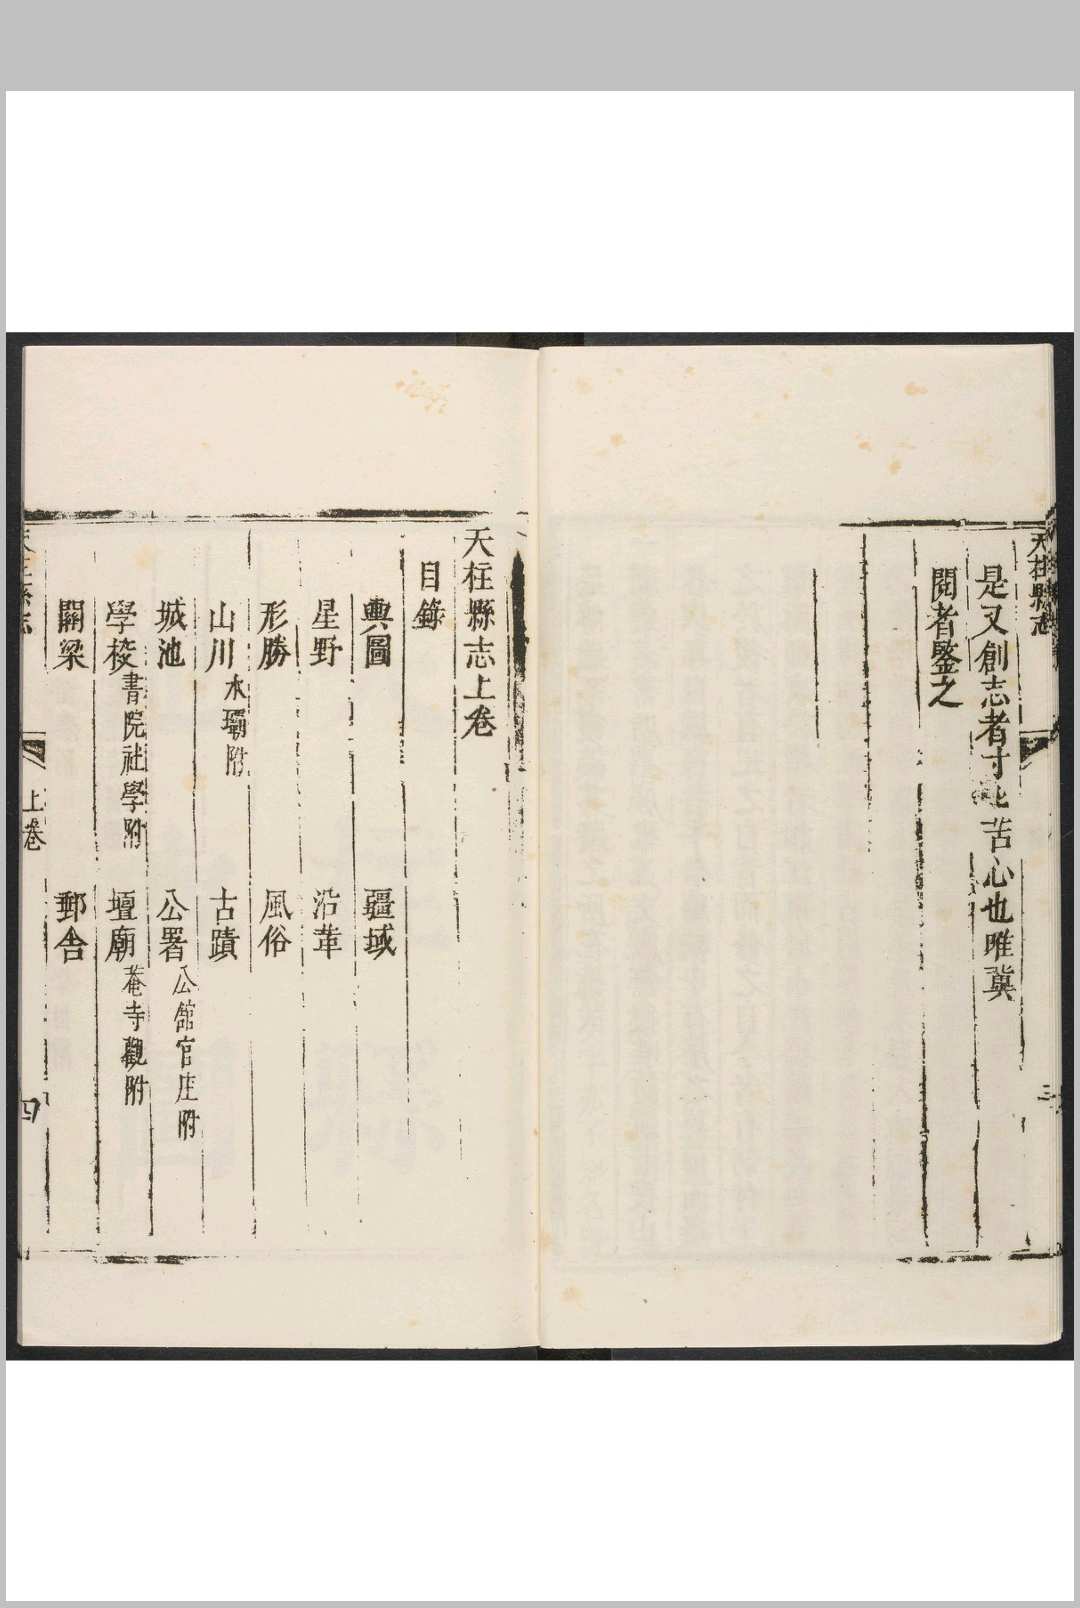 天柱縣志
三
是又創志者寸心苦心也唯冀
閱者鑒之
天柱縣志上卷
目錄
輿圖　疆域
星野　沿革
形勝　風俗
山川水壩附　古蹟
城池　公署公館官庄附
學校書院社學附　壇廟菴寺觀附
關梁　郵舍
天柱縣志
上卷
四